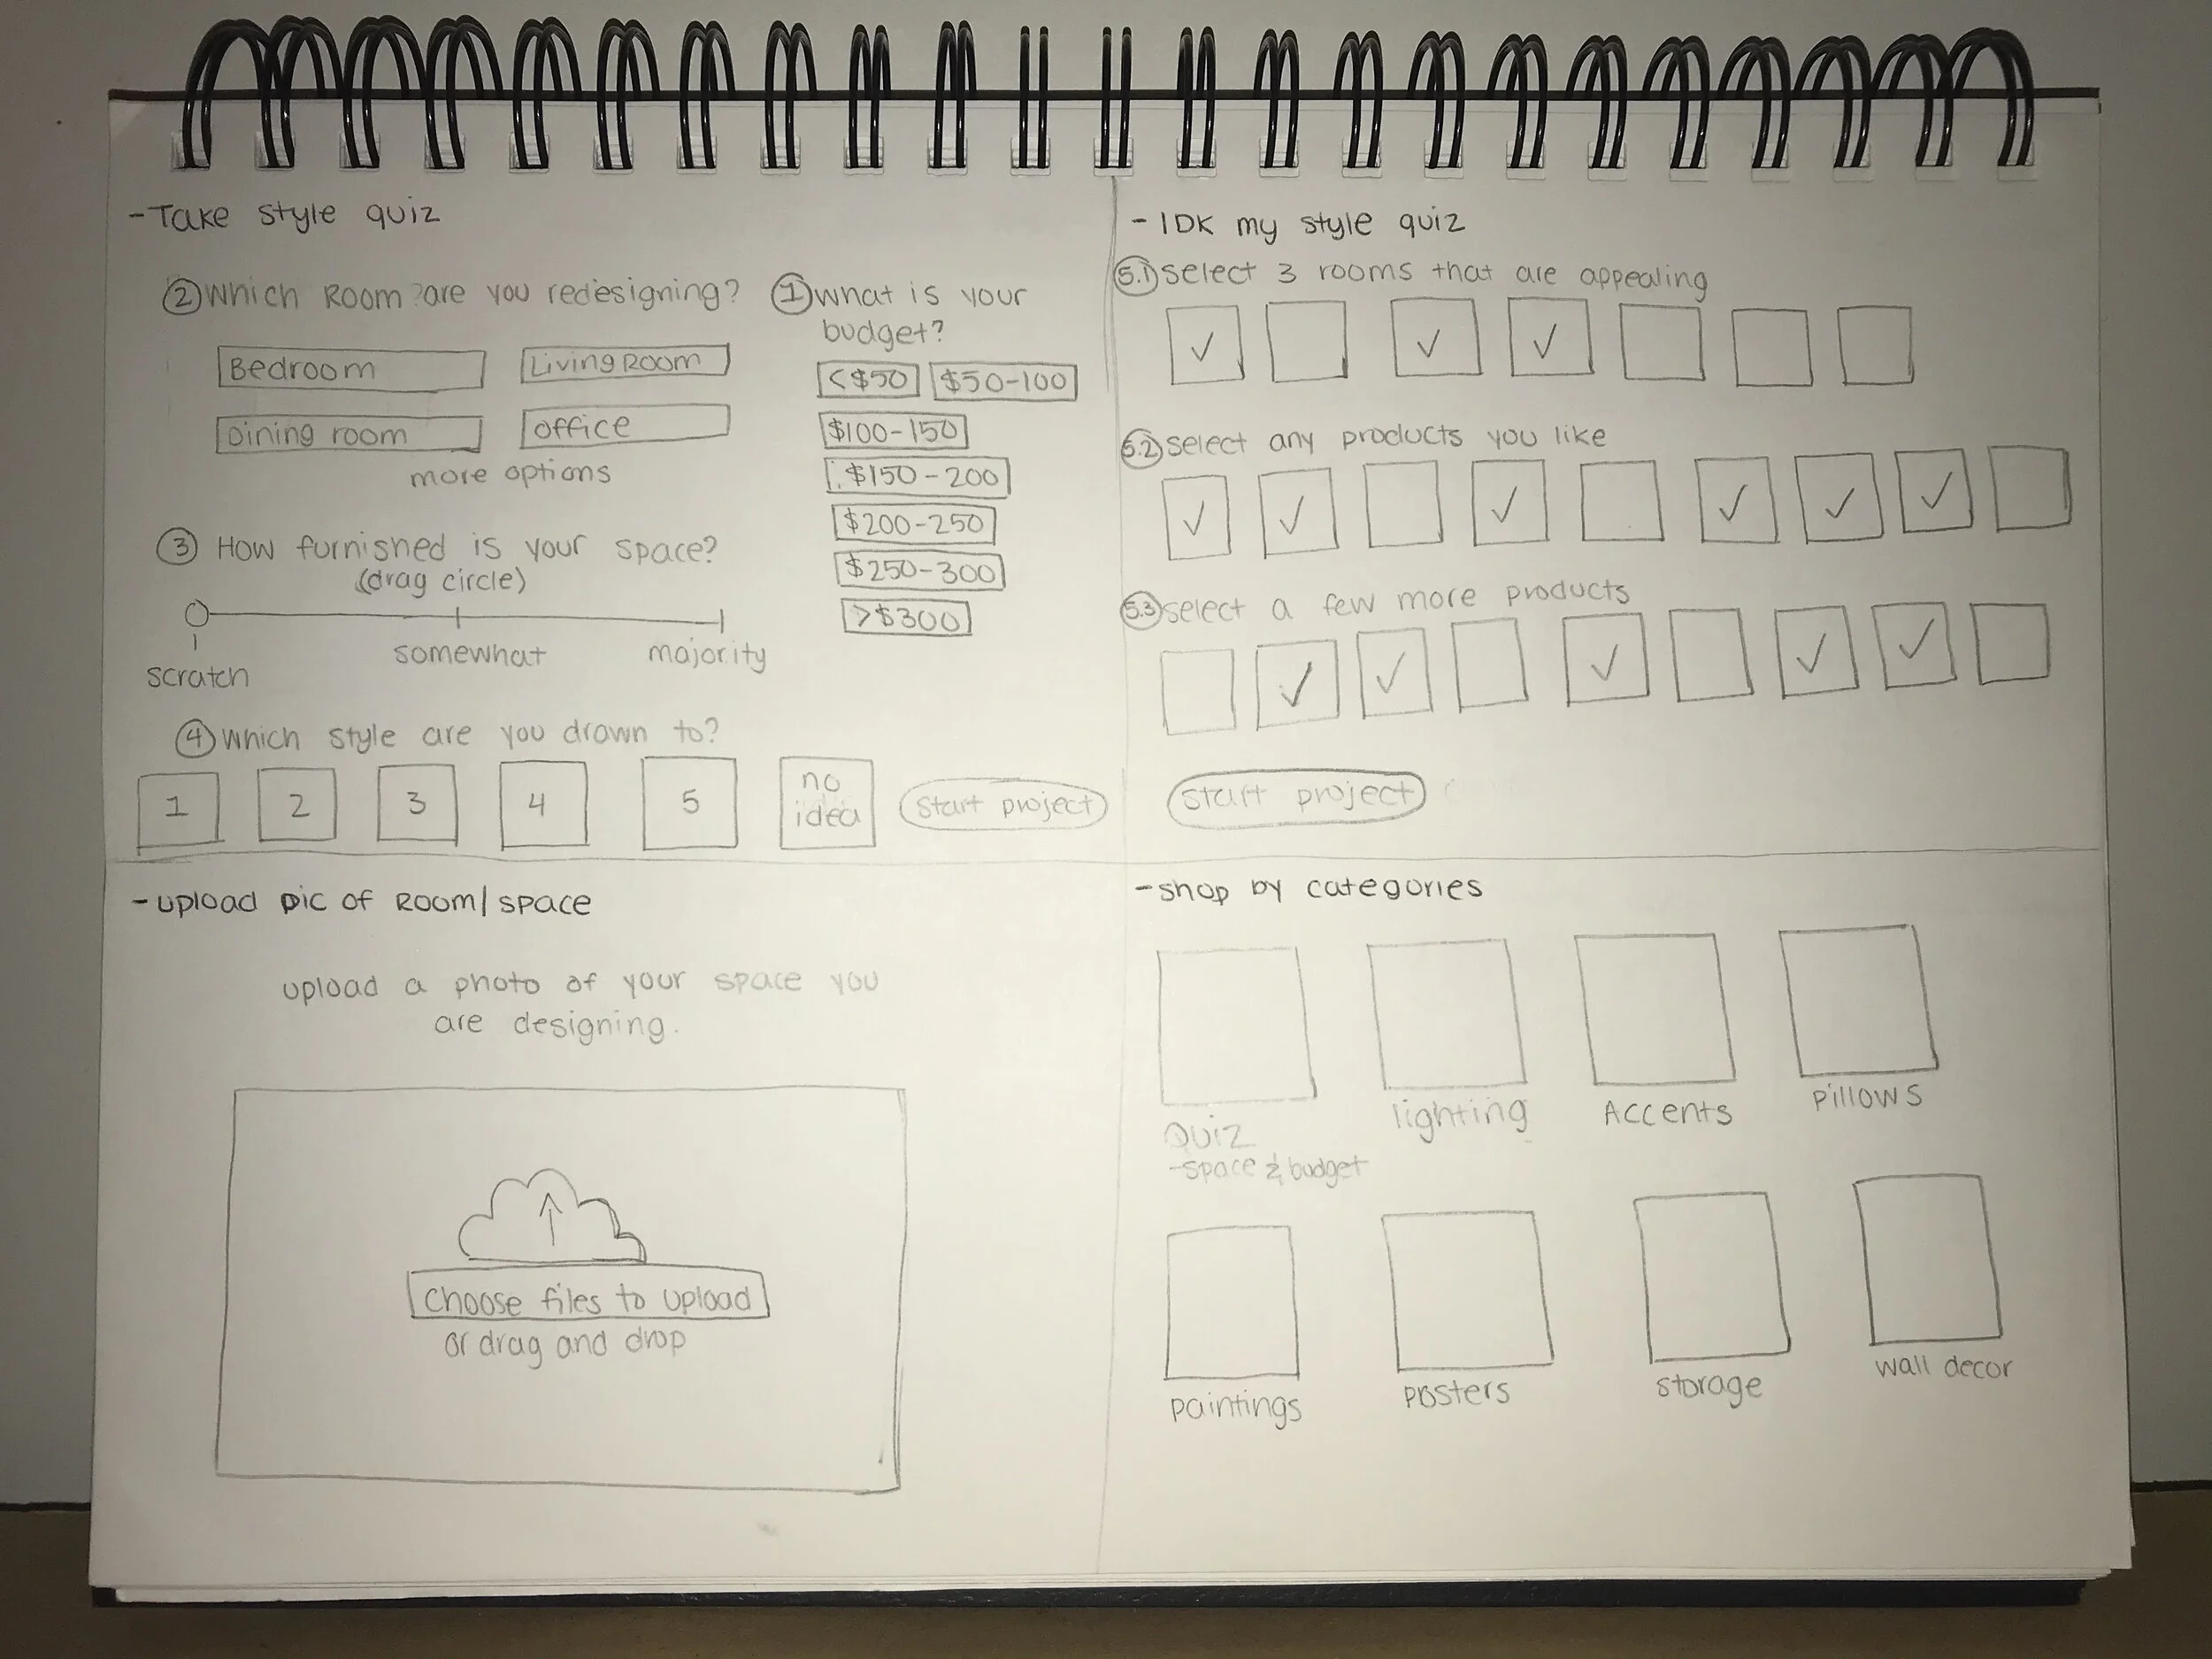 - Take style quiz
② Which Room ? are you redesigning?
Bedroom
Living Room
Dining room
office
more options
① What is your
budget?
< $50
$50-100
$100-150
$150-200
$200-250
$250-300
>$300
③ How furnished is your space?
(drag circle)
scratch
somewhat
majority
④ Which style are you drawn to?
1
2
3
4
5
no
idea
start project
- IDK my style quiz
5.1 select 3 rooms that are appealing
5.2 select any products you like
5.3 select a few more products
start project
- upload pic of Room/space
upload a photo of your space you
are designing.
choose files to upload
or drag and drop
- shop by categories
Quiz
- space & budget
lighting
Accents
Pillows
paintings
posters
storage
wall decor